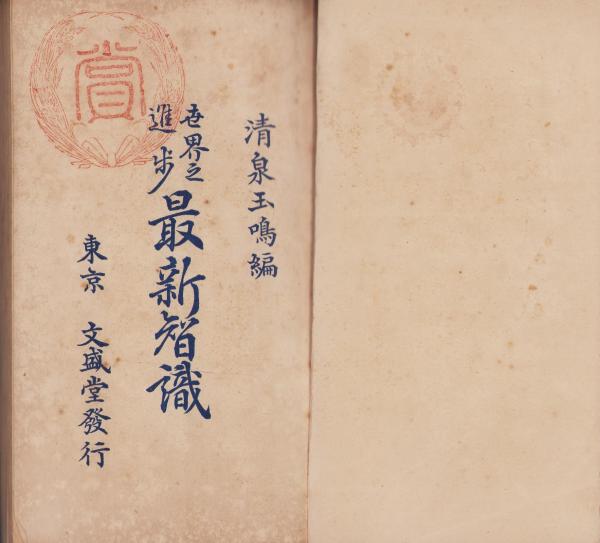 清泉玉鳴編
世界之
進步
最新智識
東京 文盛堂發行
賞